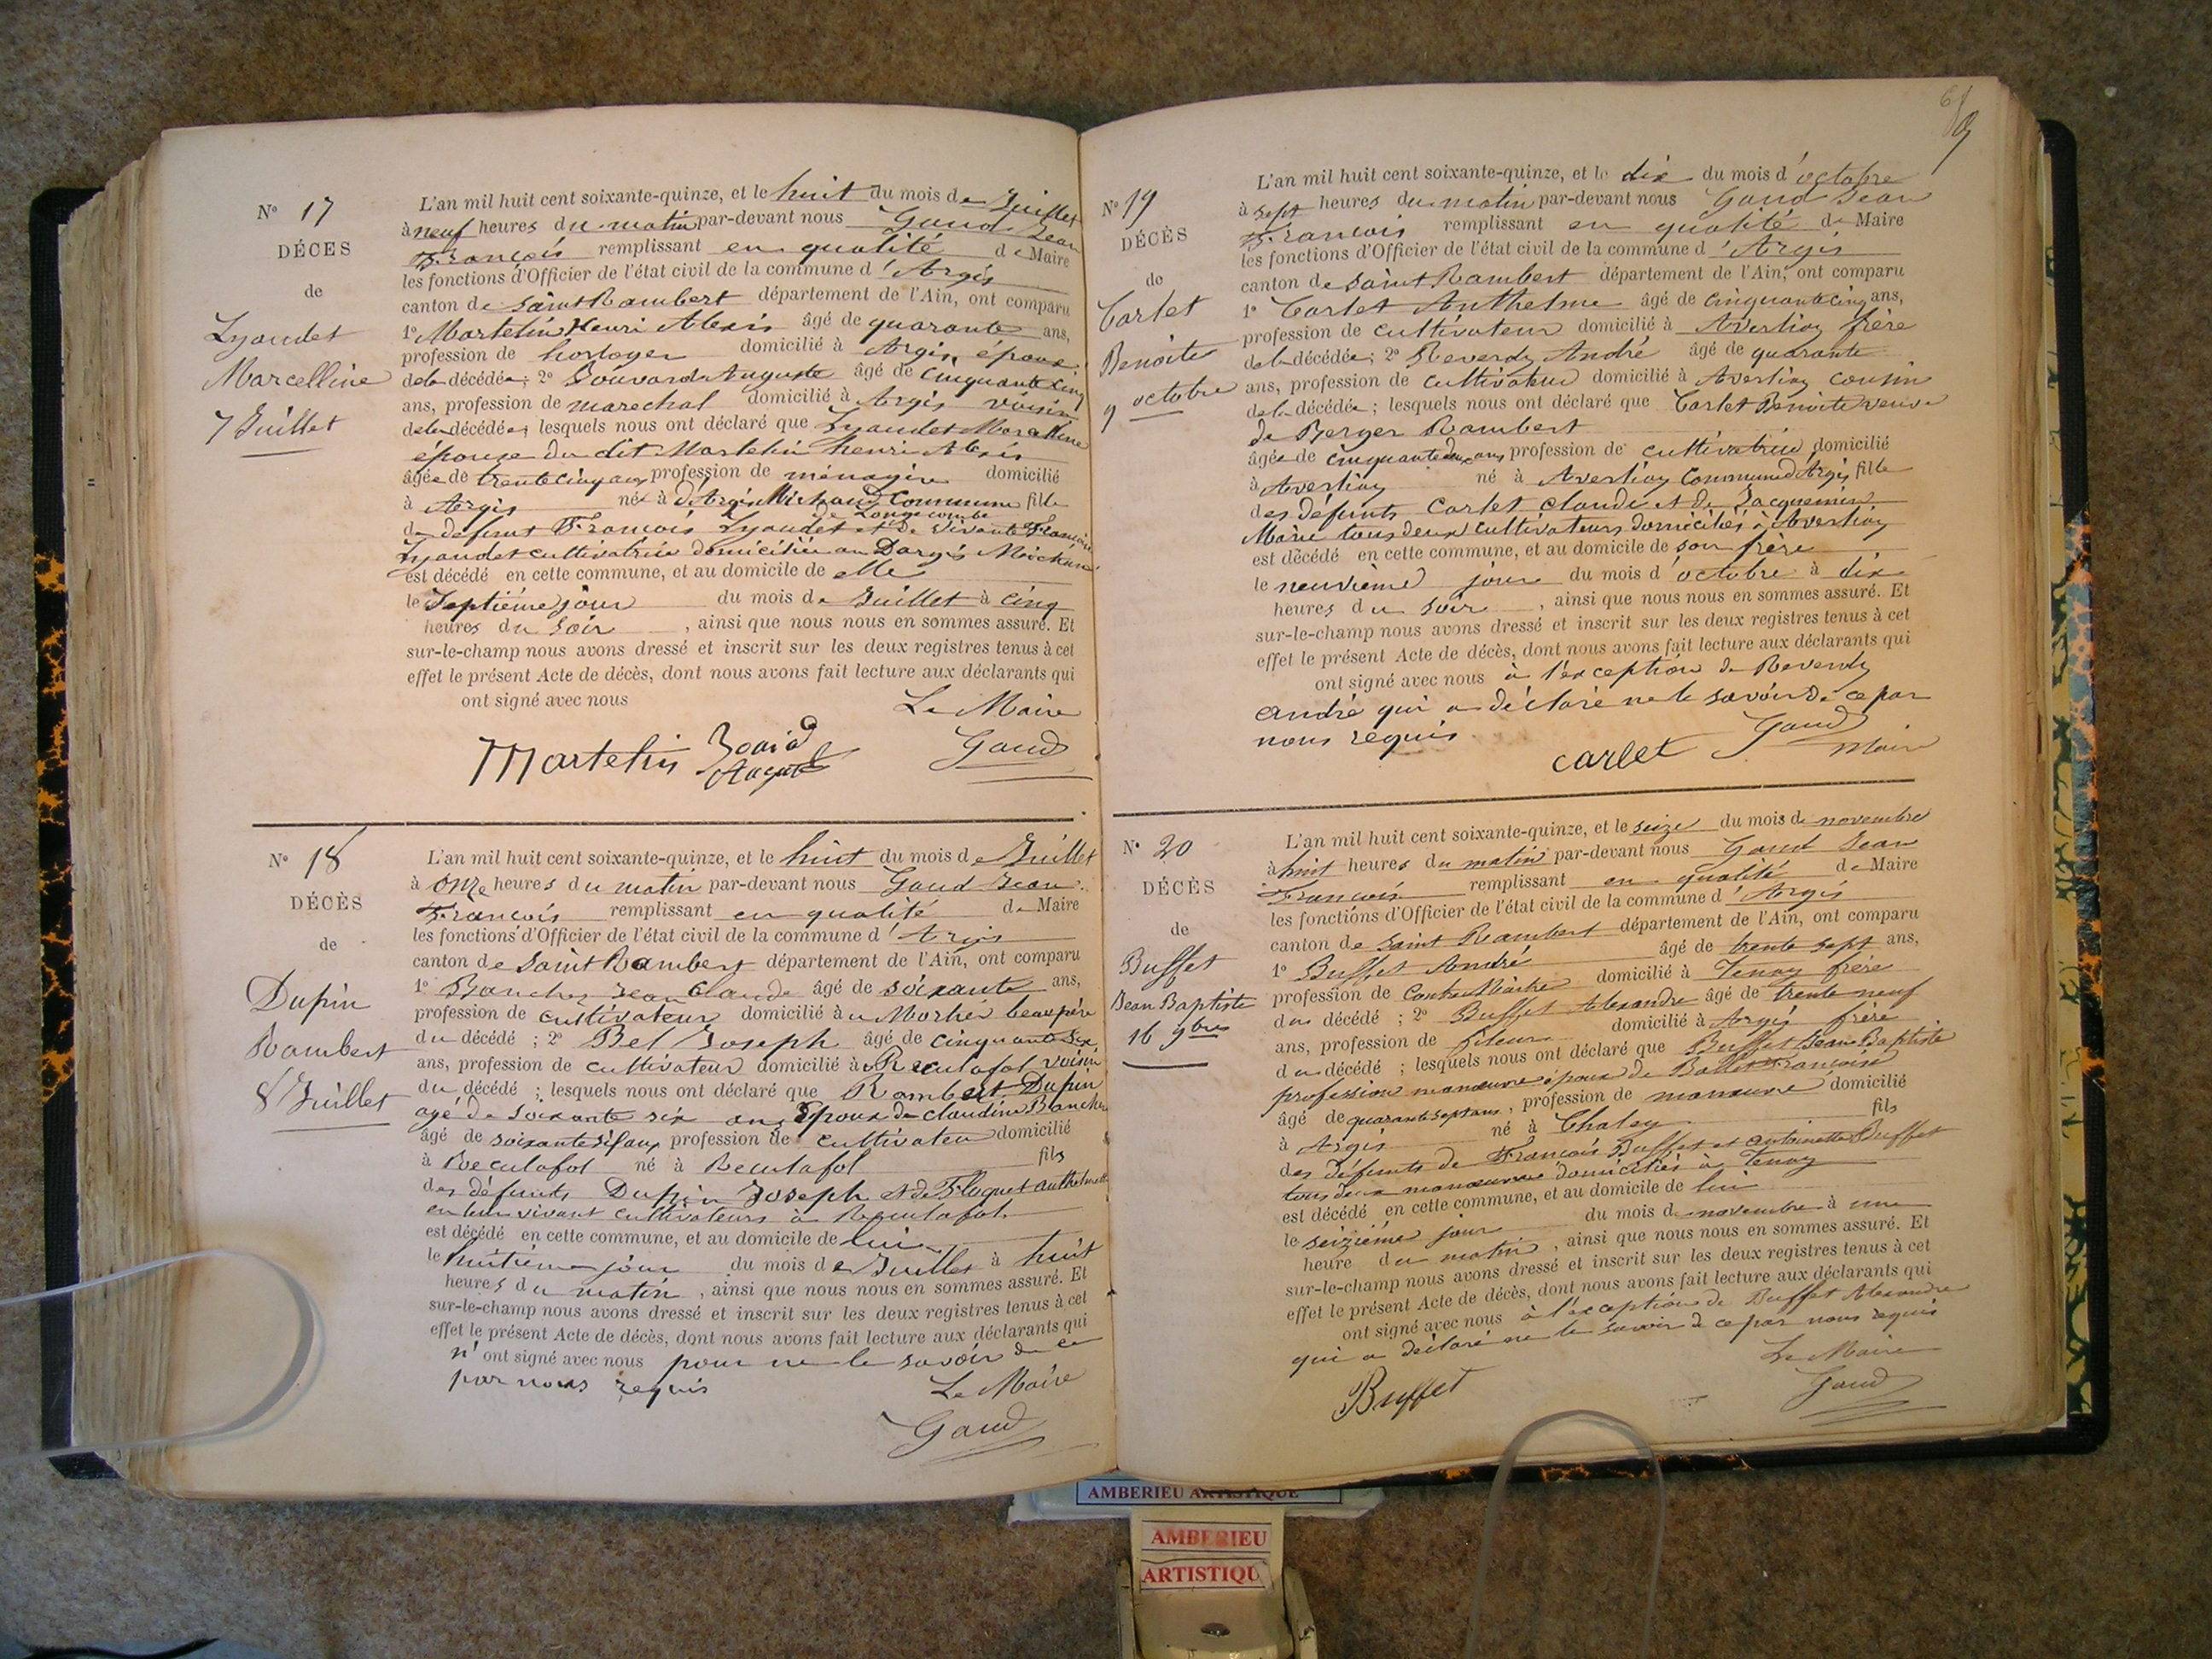 N° 17
DÉCÈS
de
Lyaudet
Marcelline
7 Juillet
L'an mil huit cent soixante-quinze, et le huit du mois de Juillet
à neuf heures du matin par-devant nous Gaud Jean
François remplissant en qualité de Maire
les fonctions d'Officier de l'état civil de la commune d'Argis
canton de Saint Rambert département de l'Ain, ont comparu
1° Martelin Henri Alexis âgé de quarante ans,
profession de horloger domicilié à Argis, époux
de la décédée; 2° Bouvard Auguste âgé de cinquante cinq
ans, profession de marechal domicilié à Argis voisin
de la décédée; lesquels nous ont déclaré que Lyaudet Marcelline
épouse du dit Martelin henri Alexis
âgée de trente cinq ans profession de ménagère domicilié
à Argis née à Dargis Michaud Commune fille
de Longecombe
de défunt François Lyaudet et de vivante Françoise
Lyaudet cultivatrice domiciliée au Dargis Michaud
est décédé en cette commune, et au domicile de elle
le Septième jour du mois de Juillet à cinq
heures du soir, ainsi que nous nous en sommes assuré. Et
sur-le-champ nous avons dressé et inscrit sur les deux registres tenus à cet
effet le présent Acte de décès, dont nous avons fait lecture aux déclarants qui
ont signé avec nous
Le Maire
Martelin
Gaud
N° 18
DÉCÈS
de
Dupin
Rambert
8 Juillet
L'an mil huit cent soixante-quinze, et le huit du mois de Juillet
à onze heures du matin par-devant nous Gaud Jean
François remplissant en qualité de Maire
les fonctions d'Officier de l'état civil de la commune d'Argis
canton de Saint Rambert département de l'Ain, ont comparu
1° Jean Claude âgé de soixante ans,
profession de cultivateur domicilié à beaupère
du décédé; 2° Bel Joseph âgé de cinquante six
ans, profession de cultivateur domicilié à Reculafol voisin
du décédé; lesquels nous ont déclaré que Rambert Dupin
agé de soixante six ans Epoux de claudine
âgé de soixante six ans profession de cultivateu domicilié
à Reculafol né à Reculafol fils
des défunts Dupin Joseph et de
en leur vivant cultivateurs à Reculafol
est décédé en cette commune, et au domicile de lui
le huitième jour du mois de Juillet à huit
heures du matin, ainsi que nous nous en sommes assuré. Et
sur-le-champ nous avons dressé et inscrit sur les deux registres tenus à cet
effet le présent Acte de décès, dont nous avons fait lecture aux déclarants qui
n'ont signé avec nous pour ne le savoir de ce
par nous requis
Le Maire
Gaud
N° 19
DÉCÈS
de
Carlet
Benoite
9 octobre
L'an mil huit cent soixante-quinze, et le dix du mois d'octobre
à sept heures du matin par-devant nous Gaud Jean
François remplissant en qualité de Maire
les fonctions d'Officier de l'état civil de la commune d'Argis
canton de Saint Rambert département de l'Ain, ont comparu
1° Carlet Anthelme âgé de cinquante cinq ans,
profession de cultivateur domicilié à Averliaz frère
de la décédée; 2° Reverdy André âgé de quarante
ans, profession de cultivateur domicilié à Averliaz cousin
de la décédée; lesquels nous ont déclaré que Carlet Benoite veuve
de Berger Rambert
âgée de cinquante deux ans profession de cultivatrice domicilié
à Averliaz né à Averliaz Commune d'Argis fille
des défunts Carlet claude et de Jacquemin
Marie tous deux cultivateurs domiciliés à Averliaz
est décédé en cette commune, et au domicile de son frère
le neuvième jour du mois d'octobre à dix
heures du soir, ainsi que nous nous en sommes assuré. Et
sur-le-champ nous avons dressé et inscrit sur les deux registres tenus à cet
effet le présent Acte de décès, dont nous avons fait lecture aux déclarants qui
ont signé avec nous à l'exception de Reverdy
André qui a déclaré ne le savoir de ce par
nous requis
carlet Gaud
Maire
N° 20
DÉCÈS
de
Buffet
Jean Baptiste
16 9bre
L'an mil huit cent soixante-quinze, et le seize du mois de novembre
à huit heures du matin par-devant nous Gaud Jean
François remplissant en qualité de Maire
les fonctions d'Officier de l'état civil de la commune d'Argis
canton de Saint Rambert département de l'Ain, ont comparu
1° Buffet André âgé de trente sept ans,
profession de Contre Maitre domicilié à Tenay frère
du décédé; 2° Buffet Alexandre âgé de trente neuf
ans, profession de fileur domicilié à Argis frère
du décédé; lesquels nous ont déclaré que Buffet Jean Baptiste
profession manœuvre époux de Ballet Françoise
âgé de quarante sept ans, profession de manœuvre domicilié
à Argis né à Chaley fils
des défunts de François Buffet et antoinette Buffet
tous deux manœuvres domiciliés à Tenay
est décédé en cette commune, et au domicile de lui
le seizième jour du mois de novembre à une
heure du matin, ainsi que nous nous en sommes assuré. Et
sur-le-champ nous avons dressé et inscrit sur les deux registres tenus à cet
effet le présent Acte de décès, dont nous avons fait lecture aux déclarants qui
ont signé avec nous à l'exception de Buffet Alexandre
qui a déclaré ne le savoir de ce par nous requis
Le Maire
Buffet Gaud
AMBERIEU ARTISTIQUE
AMBERIEU
ARTISTIQU